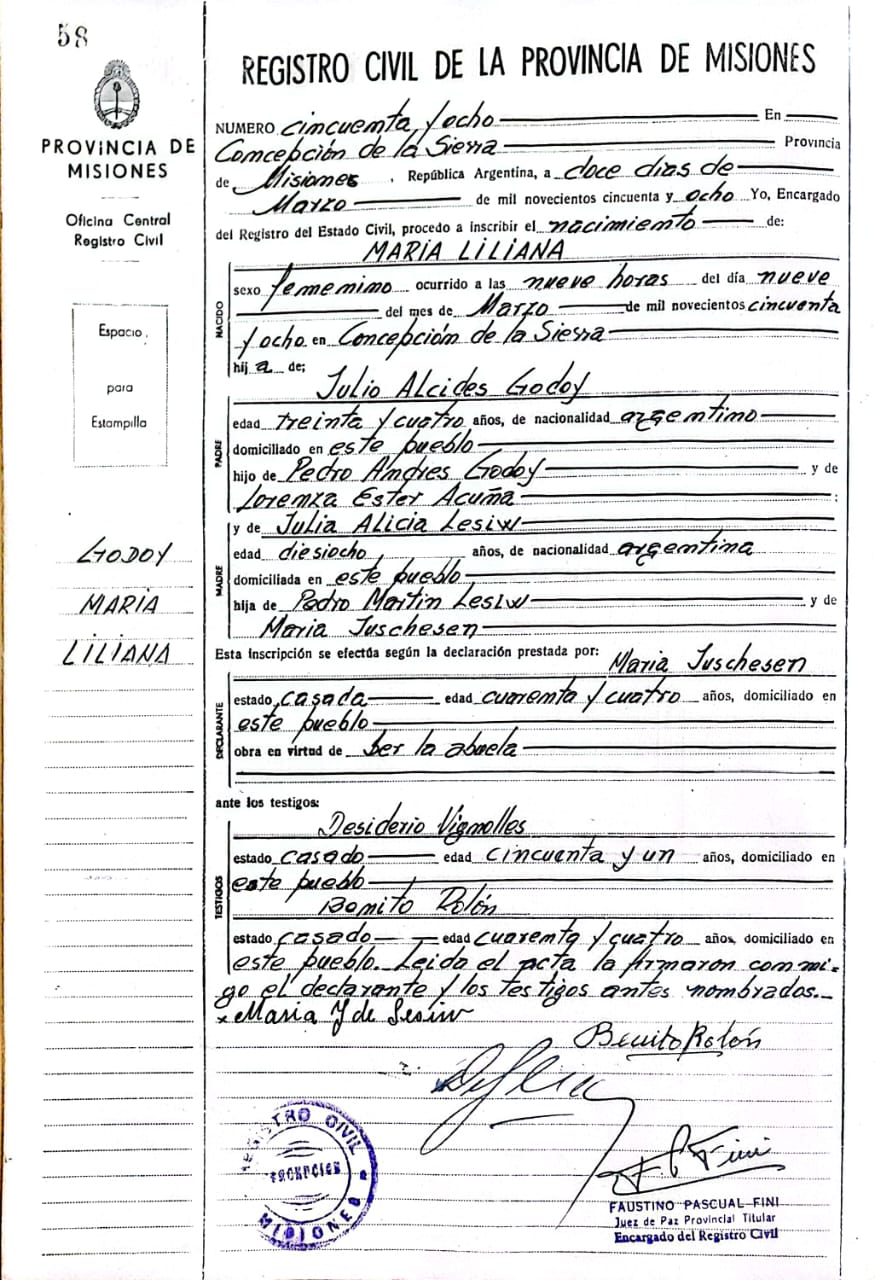 58
PROVINCIA DE
MISIONES
Oficina Central
Registro Civil
Espacio
para
Estampilla
GODOY
MARIA
LILIANA
REGISTRO CIVIL DE LA PROVINCIA DE MISIONES
NUMERO cincuenta y ocho En
Concepción de la Sierra Provincia
de Misiones, República Argentina, a doce días de
Marzo de mil novecientos cincuenta y ocho Yo, Encargado
del Registro del Estado Civil, procedo a inscribir el nacimiento de:
MARIA LILIANA
NACIDO
sexo femenino ocurrido a las nueve horas del día nueve
del mes de Marzo de mil novecientos cincuenta
y ocho en Concepción de la Sierra
hij a de;
Julio Alcides Godoy
PADRE
edad treinta y cuatro años, de nacionalidad argentino
domiciliado en este pueblo
hijo de Pedro Andres Godoy y de
Lorenza Ester Acuña :
MADRE
y de Julia Alicia Lesiw
edad diesiocho años, de nacionalidad argentina
domiciliada en este pueblo
hija de Pedro Martin Lesiw y de
Maria Juschesen
Esta inscripción se efectúa según la declaración prestada por: Maria Juschesen
DECLARANTE
estado casada edad cuarenta y cuatro años, domiciliado en
este pueblo
obra en virtud de ser la abuela
ante los testigos:
Desiderio Vignolles
TESTIGOS
estado casado edad cincuenta y un años, domiciliado en
este pueblo
Benito Rolón
estado casado edad cuarenta y cuatro años, domiciliado en
este pueblo. Leida el acta la firmaron conmi-
go el declarante y los testigos antes nombrados.-
x Maria J de Lesiw
Benito Rolón
F. P. Fini
REGISTRO CIVIL
CONCEPCION
MISIONES
FAUSTINO PASCUAL FINI
Juez de Paz Provincial Titular
Encargado del Registro Civil